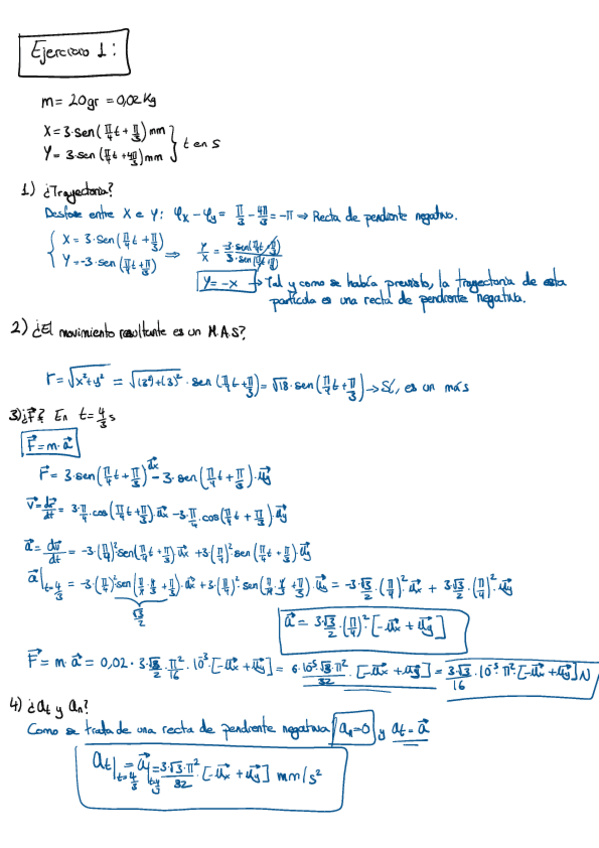 Ejercicio 1:
m = 20gr = 0,02 Kg
X = 3·sen(π/4 t + π/3) mm
Y = 3·sen(π/4 t + 4π/3) mm } t en s
1) ¿Trayectoria?
Desfase entre X e Y: φx - φy = π/3 - 4π/3 = -π ⇒ Recta de pendiente negativa.
{ X = 3·sen(π/4 t + π/3) ⇒ Y/X = -3·sen(π/4 t + π/3) / 3·sen(π/4 t + π/3)
Y = -3·sen(π/4 t + π/3)
Y = -X → Tal y como se había previsto, la trayectoria de esta
partícula es una recta de pendiente negativa.
2) ¿El movimiento resultante es un M.A.S?
r = √(x²+y²) = √((3²)+(3)²) · sen(π/4 t + π/3) = √18 · sen(π/4 t + π/3) → Sí, es un más
3) ¿F⃗? En t = 4/3 s
F⃗ = m·a⃗
r⃗ = 3·sen(π/4 t + π/3) u⃗x - 3·sen(π/4 t + π/3)·u⃗y
v⃗ = dr⃗/dt = 3·π/4·cos(π/4 t + π/3)·u⃗x - 3·π/4·cos(π/4 t + π/3)·u⃗y
a⃗ = dv⃗/dt = -3·(π/4)²·sen(π/4 t + π/3)·u⃗x + 3·(π/4)²·sen(π/4 t + π/3)·u⃗y
a⃗|t=4/3 = -3·(π/4)²·sen(π/4·4/3 + π/3)·u⃗x + 3·(π/4)²·sen(π/4·4/3 + π/3)·u⃗y = -3·√3/2·(π/4)²·u⃗x + 3·√3/2·(π/4)²·u⃗y
√3/2
a⃗ = 3·√3/2·(π/4)²·[-u⃗x + u⃗y]
F⃗ = m·a⃗ = 0,02 · 3·√3/2 · π²/16 · 10⁻³·[-u⃗x + u⃗y] = 6·10⁻⁵·√3·π²/32 · [-u⃗x + u⃗y] = 3·√3/16 · 10⁻⁵·π²·[-u⃗x + u⃗y] N
4) ¿at y an?
Como se trata de una recta de pendiente negativa an=0 y at = a⃗
at|t=4/3 = a⃗|t=4/3 = 3·√3·π²/32 · [-u⃗x + u⃗y] mm/s²